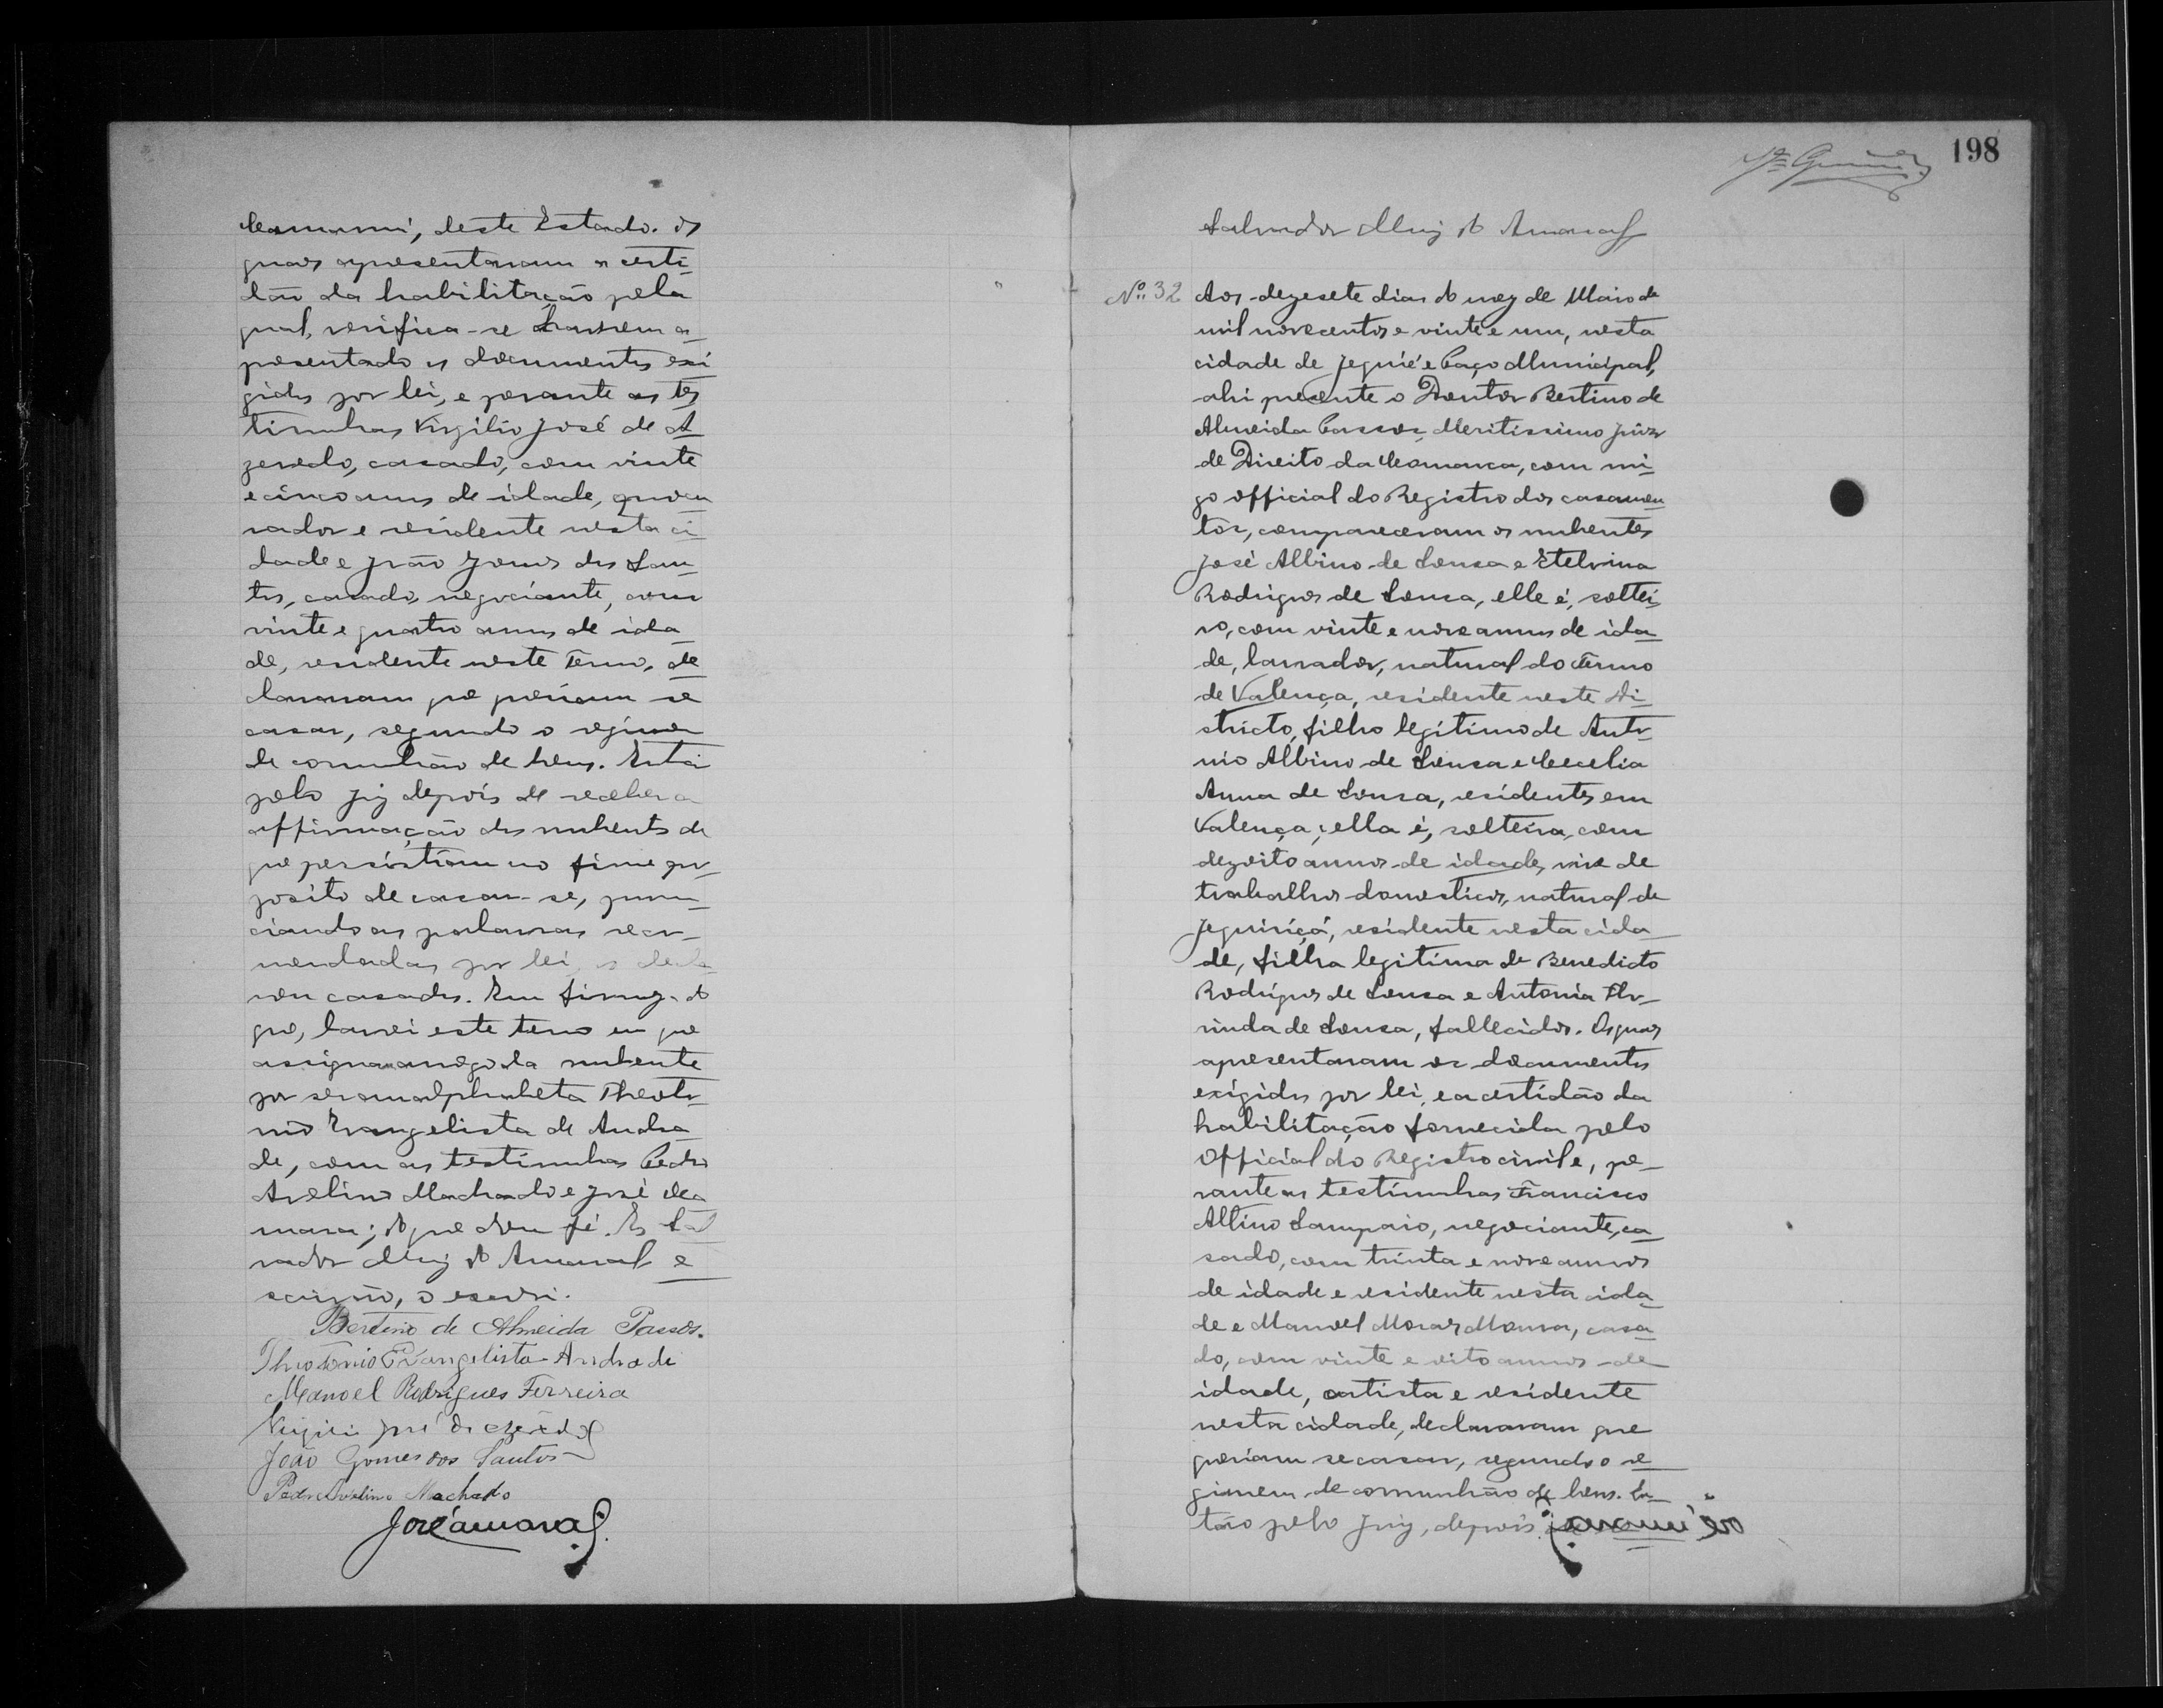 Camamú, deste Estado. Os
quaes apresentaram a certi-
dão da habilitação pela
qual, verifica-se haverem a-
presentado os documentos exi-
gidos por lei, e perante as tes-
timunhas Virgilio José de A-
zevedo, casado, com vinte
e cinco annos de idade,
e residente nesta ci-
dade e João Gomes dos San-
tos, casado, negociante, com
vinte e quatro annos de ida-
de, residente neste Termo, de-
clararam que queriam se
casar, segundo o regimen
de comunhão de bens. Então
pelo Juiz depois de receber a
affirmação dos nubentes de
que persistiam no firme pro-
posito de casar-se, pronun-
ciando as palavras recom-
mendadas por lei, os decla-
rou casados. Em firmeza do
que, lavrei este termo em que
assigna a rogo da nubente
por ser analphabeta Theoto-
nio Evangelista de Andra-
de, com as testimunhas Pedro
Avelino Machado e José
; do que dou fé. Eu Sal-
vador Muiz do Amaral e-
scrivão, o escrevi.
Bertino de Almeida Passos.
Theotonio Evangelista Andrade
Manoel Rodrigues Ferreira
Virgilio José de Azevedo
João Gomes dos Santos
Pedro Avelino Machado
José
198
Salvador Muiz do Amaral
Nº 32 Aos dezesete dias do mez de Maio de
mil novecentos e vinte e um, nesta
cidade de Jequié e Paço Municipal,
ahi presente o Doutor Bertino de
Almeida Passos, Meritissimo Juiz
de Direito da Comarca, com mi-
go official do Registro dos casamen-
tos, compareceram os nubentes
José Albino de Sousa e Etelvina
Rodrigues de Sousa, elle é, soltei-
ro, com vinte e nove annos de ida-
de, lavrador, natural do Termo
de Valença, residente neste Di-
stricto, filho legitimo de Anto-
nio Albino de Sousa e Cecelia
Anna de Sousa, residentes em
Valença; ella é, solteira, com
dezoito annos de idade, vive de
trabalhos domesticos, natural de
Jequiriçá, residente nesta cida-
de, filha legitima de Benedicto
Rodrigues de Sousa e Antonia Flo-
rinda de Sousa, fallecidos. Os quaes
apresentaram os documentos
exigidos por lei, e a certidão da
habilitação fornecida pelo
Official do Registro civil e, pe-
rante as testimunhas Francisco
Albino Sampaio, negociante, ca-
sado, com trinta e nove annos
de idade e residente nesta cida-
de e Manoel Moura, casa-
do, com vinte e oito annos de
idade, artista e residente
nesta cidade, declararam que
queriam se casar, segundo o re-
gimem de comunhão de bens. En-
tão pelo Juiz, depois